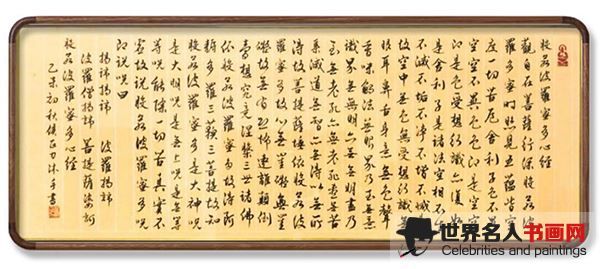 般若波羅蜜多心經
觀自在菩薩行深般若波
羅蜜多時照見五蘊皆空
度一切苦厄舍利子色不異
空空不異色色即是空空
即是色受想行識亦復如
是舍利子是諸法空相不生
不滅不垢不淨不增不減是
故空中無色無受想行識無
眼耳鼻舌身意無色聲
香味觸法無眼界乃至無意
識界無無明亦無無明盡乃
至無老死亦無老死盡無苦
集滅道無智亦無得以無所
得故菩提薩埵依般若波
羅蜜多故心無罣礙無罣
礙故無有恐怖遠離顛倒
夢想究竟涅槃三世諸佛
依般若波羅蜜多故得阿
耨多羅三藐三菩提故知
般若波羅蜜多是大神咒
是大明咒是無上咒是無等
等咒能除一切苦真實不
虛故說般若波羅蜜多咒
即說咒曰
揭諦揭諦 波羅揭諦
波羅僧揭諦 菩提薩婆訶
般若波羅蜜多心經
乙未初秋 沐手書
世界名人书画网
Celebrities and paintings